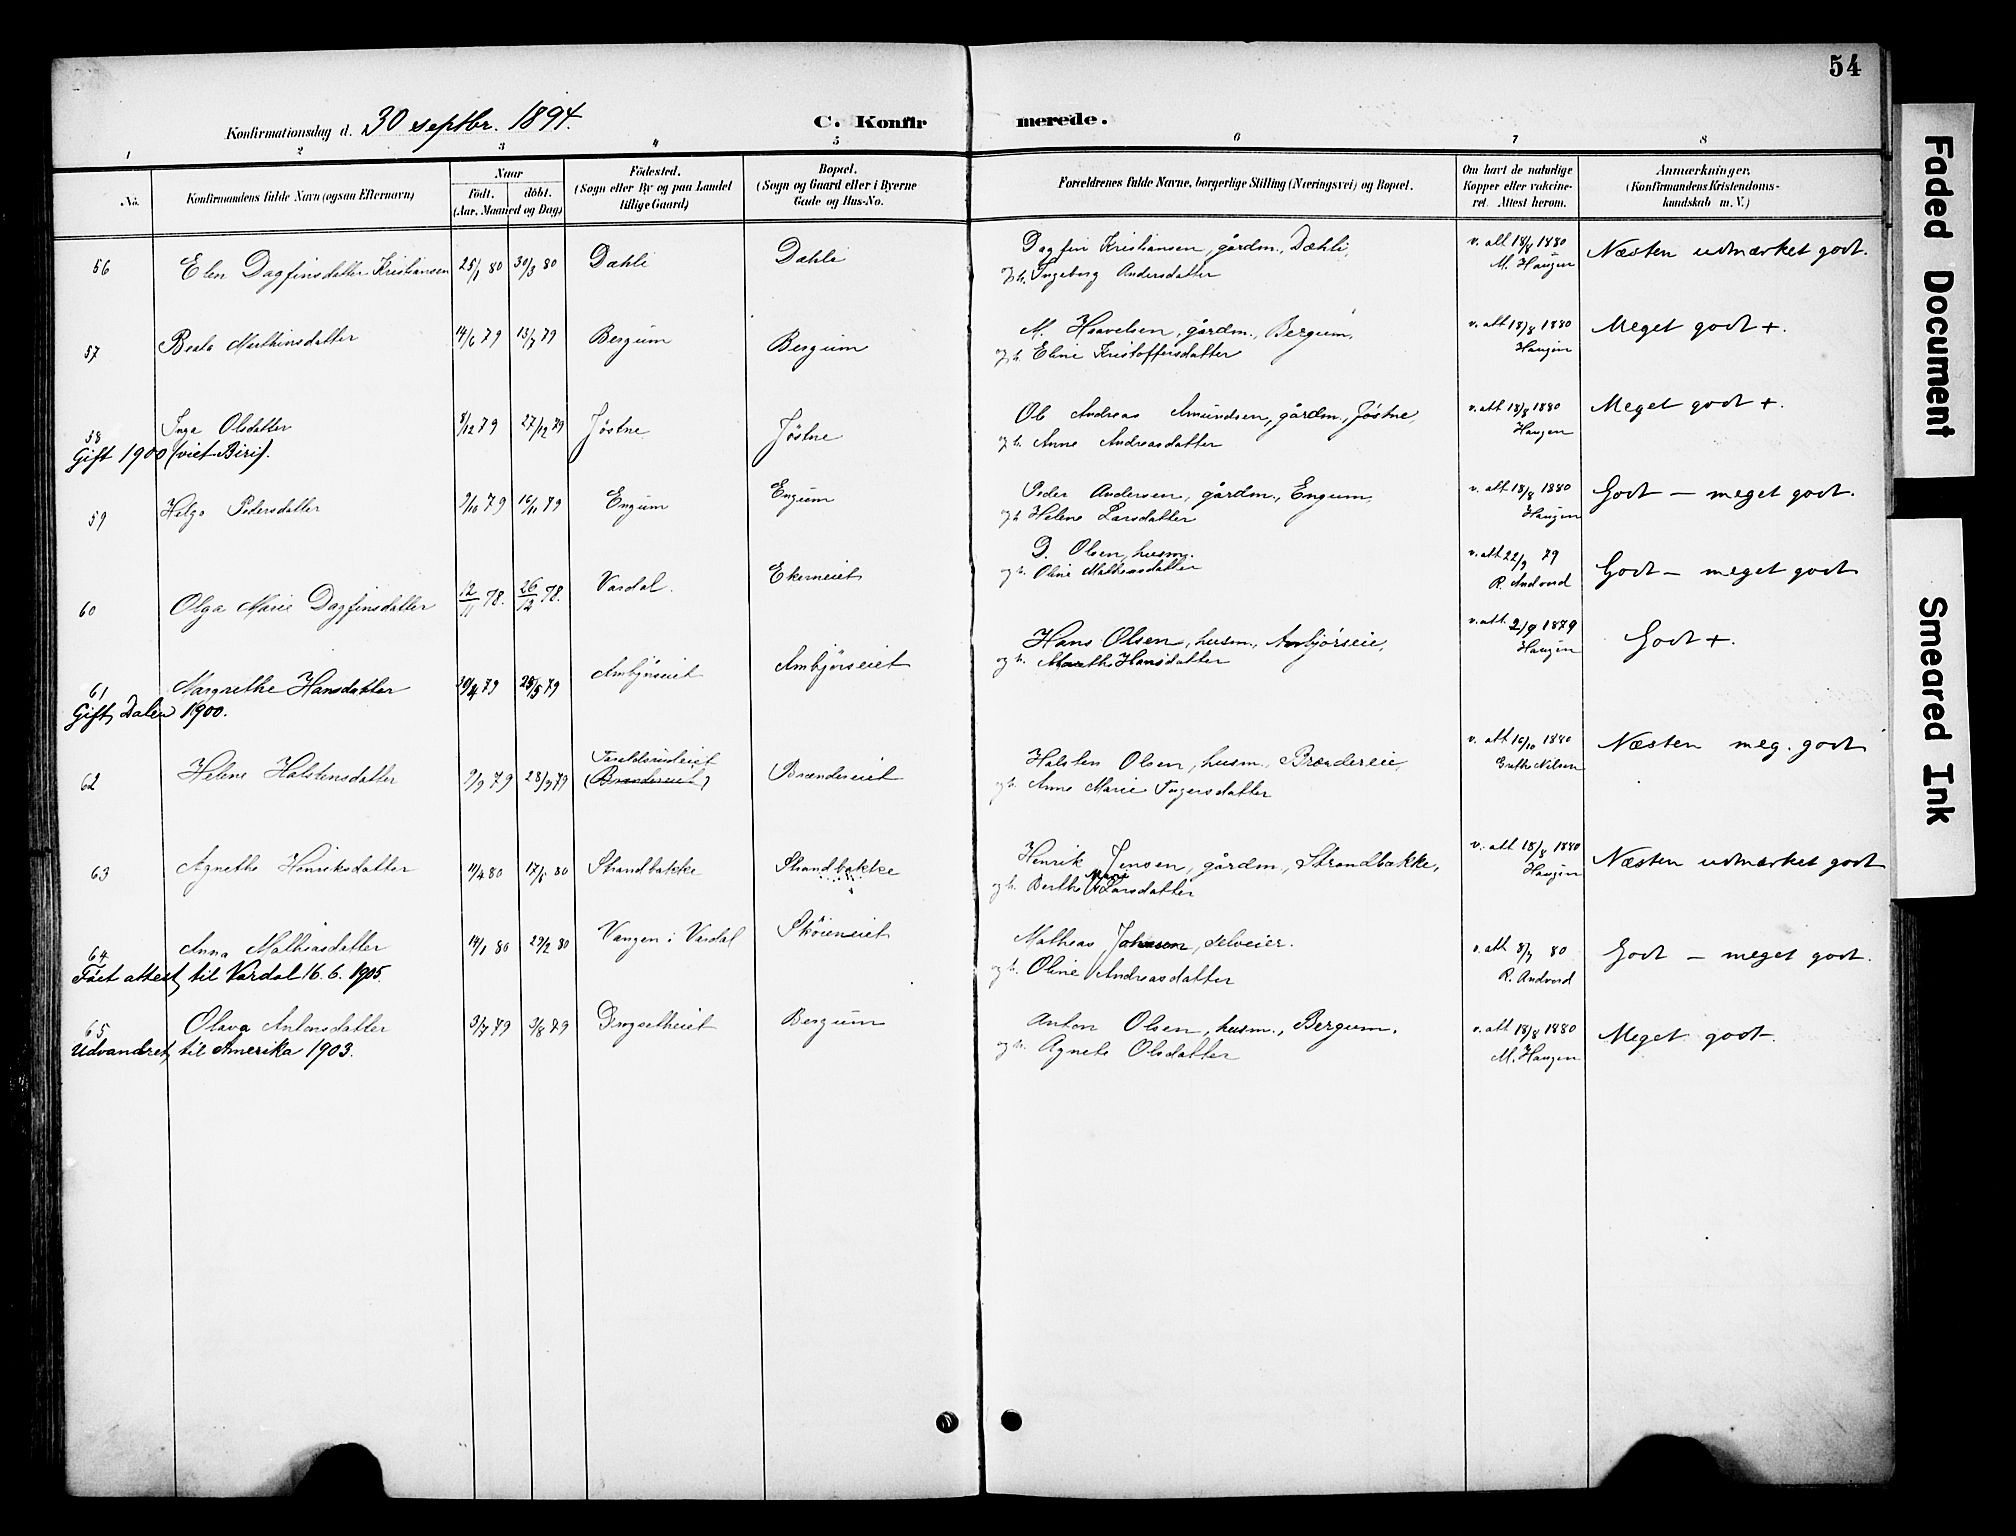 54
Konfirmationsdag d. 30 septbr. 1894.
C. Konfirmerede.
1 2 3 4 5 6 7 8
No.
Konfirmandens fulde Navn (ogsaa Efternavn)
Naar
født. døbt.
(Aar, Maaned og Dag)
Fødested.
(Sogn eller By og paa Landet
tillige Gaard)
Bopæl.
(Sogn og Gaard eller i Byerne
Gade og Hus-No.
Forældrenes fulde Navne, borgerlige Stilling (Næringsvei) og Bopæl.
Om havt de naturlige
Kopper eller vakcine-
ret. Attest herom.
Anmærkninger.
(Konfirmandens Kristendoms-
kundskab m. V.)
56 Elen Dagfinsdatter Kristiansen 25/1 80 30/3 80 Dæhli Dæhli Dagfin Kristiansen, gårdm., Dæhli, v. att 18/8 1880 Næsten udmærket godt.
og h. Ingeborg Andersdatter M. Haugen
57 Beate Marthinsdatter 14/6 79 13/7 79 Bergum Bergum M. Haavelsen, gårdm., Bergum, v. att 18/8 1880 Meget godt +.
og h. Eline Kristoffersdatter Haugen
58 Inga Olsdatter 8/12 79 27/12 79 Jøstne Jøstne Ole Andreas Amundsen, gårdm., Jøstne, v. att 18/8 1880 Meget godt +.
Gift 1900 (viet Biri). og h. Anne Andreasdatter Haugen
59 Helga Pedersdatter 9/10 79 16/11 79 Engum Engum Peder Andersen, gårdm., Engum v. att 18/8 1880 Godt – meget godt.
og h. Helene Larsdatter Haugen
60 Olga Marie Dagfinsdatter 12/11 78. 26/12 78. Vardal. Ekerneiet D. Olsen, husm. v. att 22/9 79 Godt – meget godt
og h. Oline Matheasdatter R. Andvord
61 Margrethe Hansdatter 20/4 79 25/5 79 Ambjørseiet Ambjørseiet Hans Olsen, husm., Ambjørseie, v. att. 2/9 1879 Godt +.
Gift, Dalen 1900. og h. Marthe Hansdatter Haugen
62 Helene Halstensdatter 9/9 79 28/9 79 Taraldsrudeiet
(Brændereiet) Brændereiet Halsten Olsen, husm., Brændereie, v. att 16/10 1880 Næsten meg. godt
og h. Anne Marie Ingersdatter Guthr Nilsen
63 Agnethe Henriksdatter 11/4 80 17/5 80 Strandbakke Strandbakke Henrik Jensen, gårdm, Strandbakke, v. att 18/8 1880 Næsten udmærket godt
og h. Berthe Mari Larsdatter Haugen
64 Anna Matheasdatter 14/1 80 29/2 80 Vangen i Vardal Skøieneiet Matheas Johnsen, selveier. v. att 8/7 80 Godt – meget godt.
Fået attest til Vardal 16.6.1905. og h. Oline Andreasdatter R. Andvord
65 Olava Antonsdatter 3/7 79 3/8 79 Bergum Anton Olsen, husm., Bergum. v. att 18/8 1880 Meget godt.
Udvandret til Amerika 1903. og h. Agnete Olsdatter M. Haugen
Faded Document
Smeared Ink